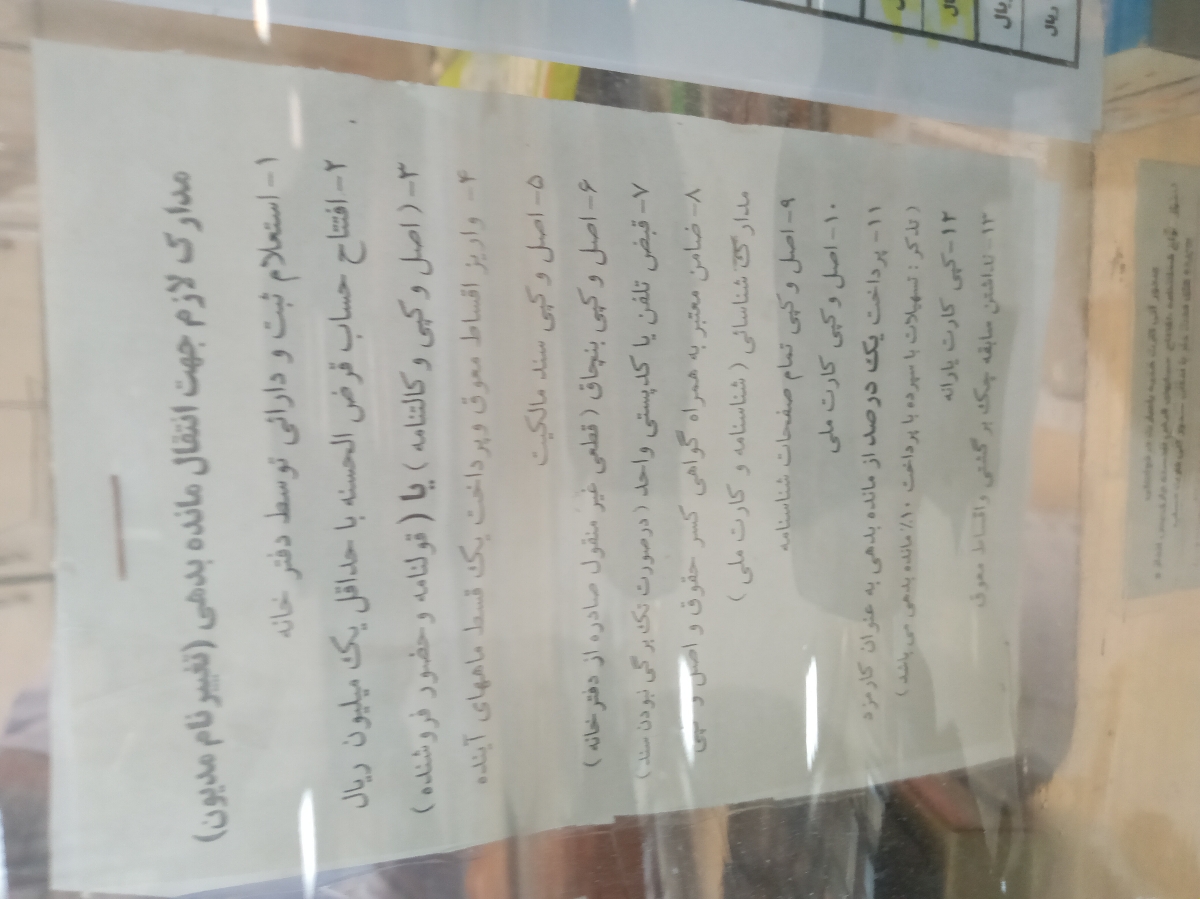 مدارک لازم جهت انتقال مانده بدهی (تغییر نام مدیون)
۱- استعلام ثبت و دارائی توسط دفتر خانه
۲- افتتاح حساب قرض الحسنه با حداقل یک میلیون ریال
۳- (اصل و کپی وکالتنامه) یا (قولنامه و حضور فروشنده)
۴- واریز اقساط معوق و پرداخت یک قسط ماههای آینده
۵- اصل و کپی سند مالکیت
۶- اصل و کپی بنچاق (قطعی غیر منقول صادره از دفترخانه)
۷- قبض تلفن یا کدپستی واحد (درصورت تک برگی نبودن سند)
۸- ضامن معتبر به همراه گواهی کسر حقوق و اصل و کپی
مدارک شناسائی (شناسنامه و کارت ملی)
۹- اصل و کپی تمام صفحات شناسنامه
۱۰- اصل و کپی کارت ملی
۱۱- پرداخت یک درصد از مانده بدهی به عنوان کارمزد
(تذکر: تسهیلات با سپرده با پرداخت ۱۰٪ مانده بدهی می باشد)
۱۲- کپی کارت یارانه
۱۳- نداشتن سابقه چک برگشتی و اقساط معوق
ریال
ریال